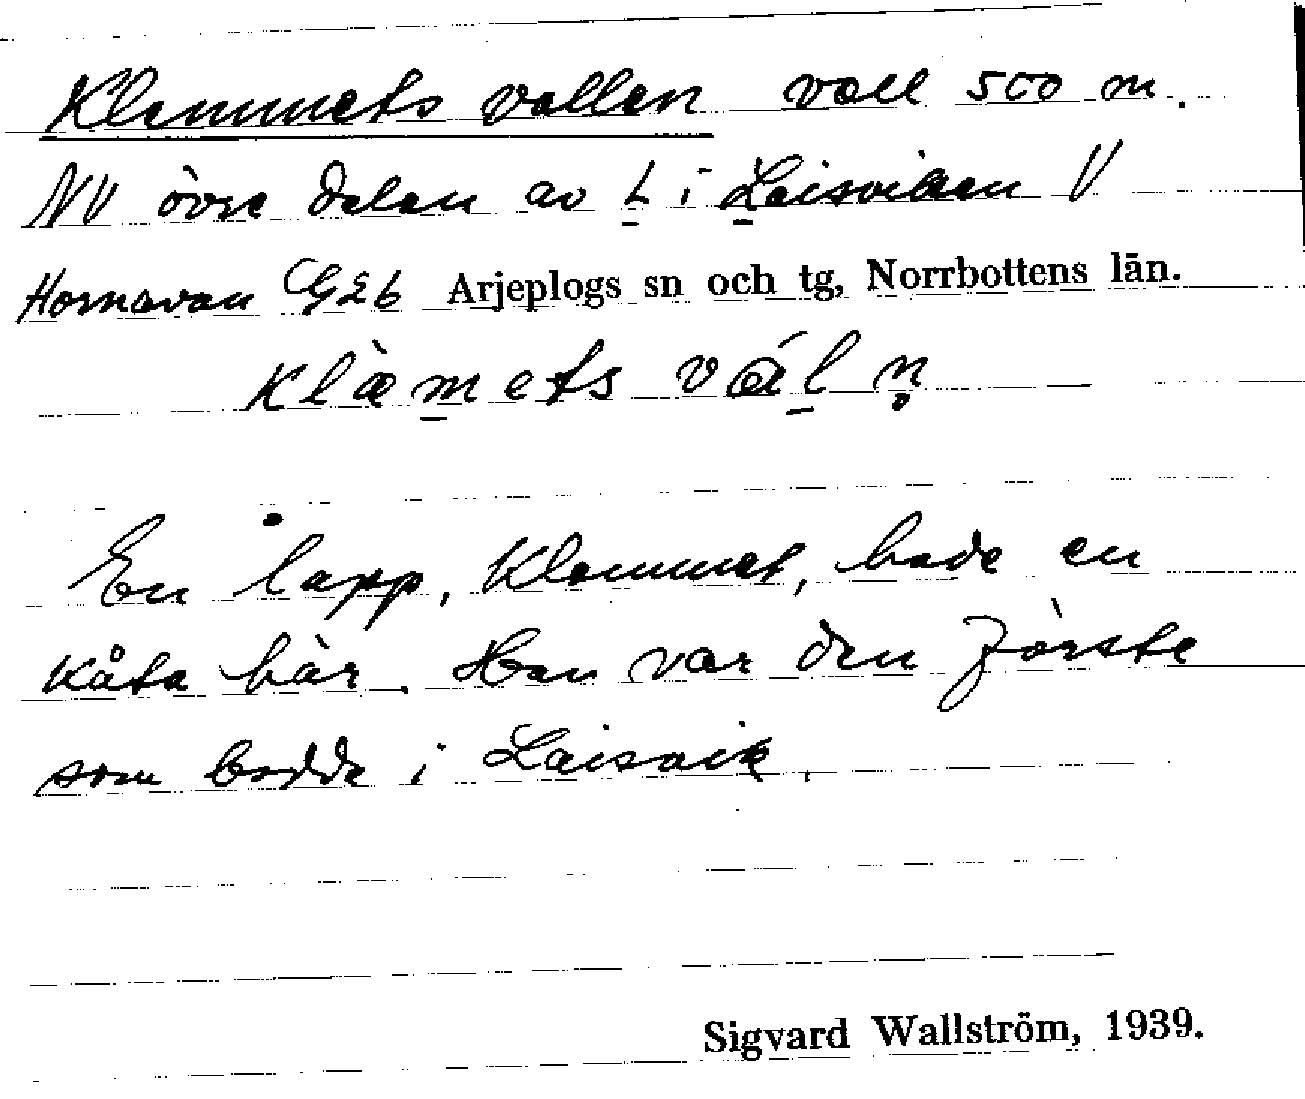 Klemmets vallen vall 500 m.
NV övre delen av L i Laisviken V
Hornavan G2b Arjeplogs sn och tg, Norrbottens län.
klæ̀mets vál n̥
En lapp, Klemmet, hade en
kåta här. Han var den förste
som bodde i Laisvik.
Sigvard Wallström, 1939.